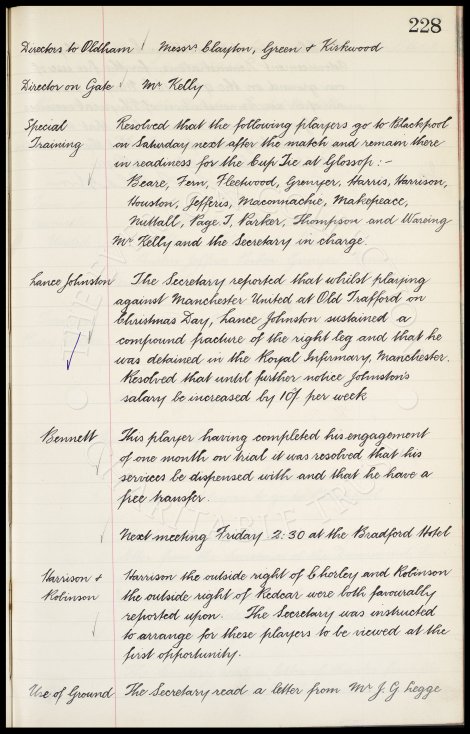 228
Directors to Oldham Messrs Clayton, Green & Kirkwood
Director on Gate Mr Kelly
Special Resolved that the following players go to Blackpool
Training on Saturday next after the match and remain there
in readiness for the Cup Tie at Glossop:-
Beare, Fern, Fleetwood, Grenyer, Harris, Harrison,
Houston, Jefferis, Maconnachie, Makepeace,
Nuttall, Page T, Parker, Thompson and Wareing
Mr Kelly and the Secretary in charge.
Lance Johnston The Secretary reported that whilst playing
against Manchester United at Old Trafford on
Christmas Day, Lance Johnston sustained a
compound fracture of the right leg and that he
was detained in the Royal Infirmary, Manchester.
Resolved that until further notice Johnston's
salary be increased by 10/- per week
Bennett This player having completed his engagement
of one month on trial it was resolved that his
services be dispensed with and that he have a
free transfer.
Next meeting Friday 2:30 at the Bradford Hotel
Harrison & Harrison the outside right of Chorley and Robinson
Robinson the outside right of Redcar were both favourably
reported upon. The Secretary was instructed
to arrange for these players to be viewed at the
first opportunity.
Use of Ground The Secretary read a letter from Mr J. G. Legge